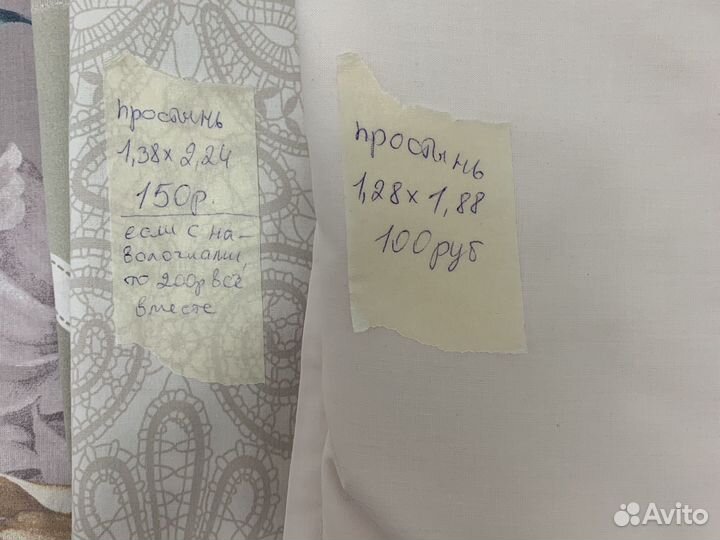 простынь
1,38 х 2,24
150р.
если с на-
волочками,
то 200р всё
вместе
простынь
1,28 х 1,88
100 руб
Avito